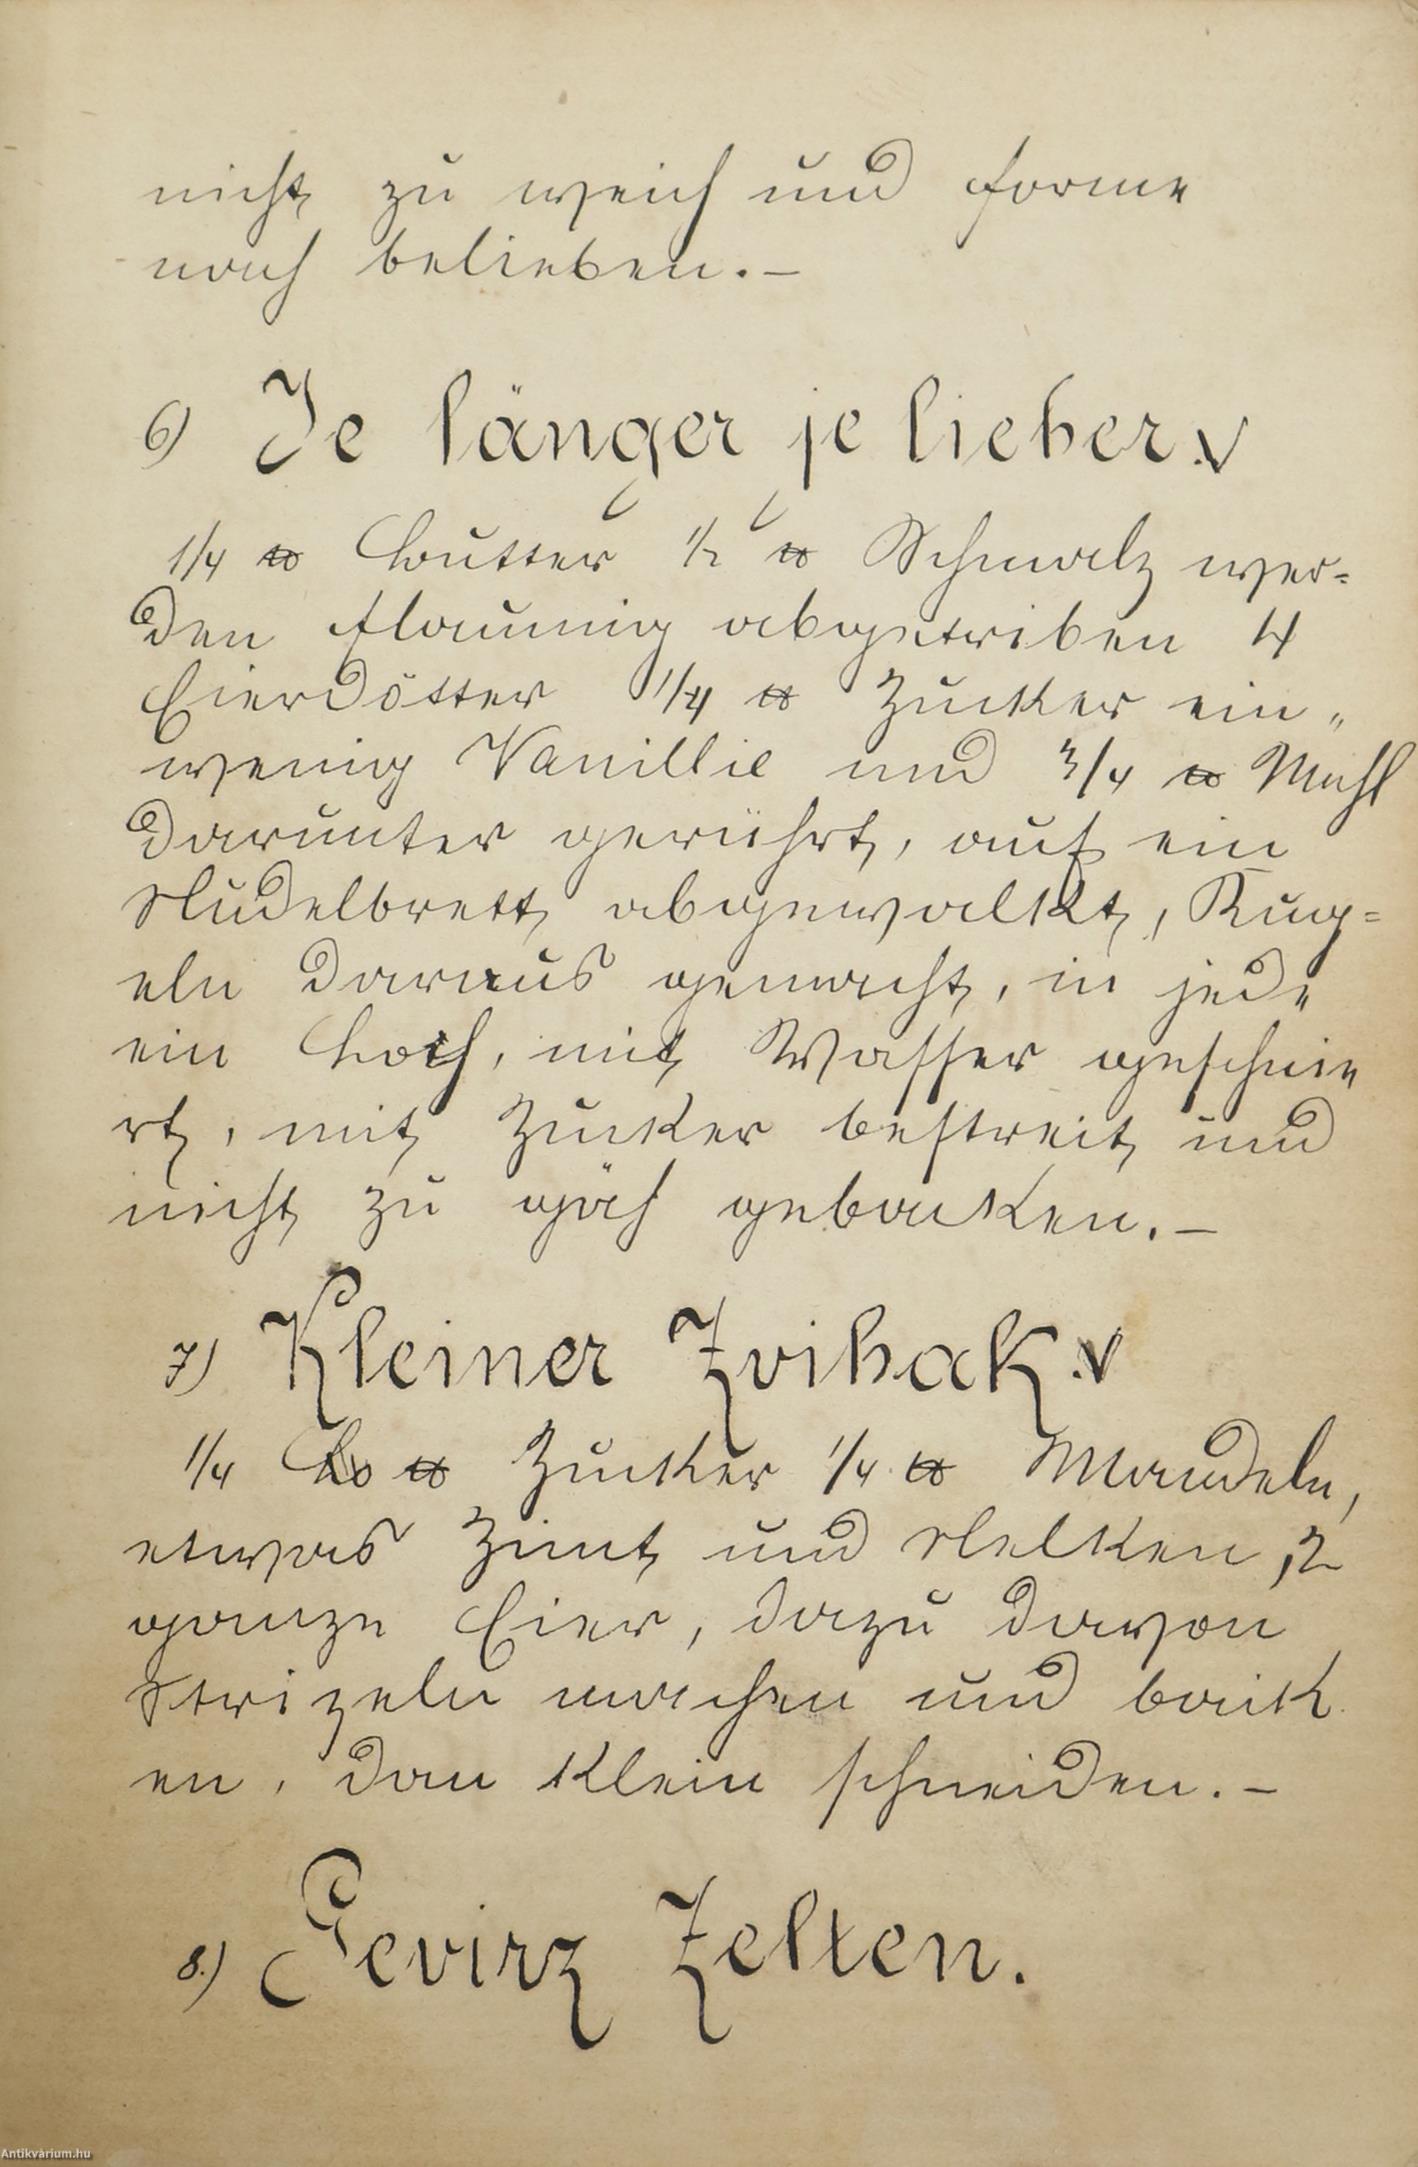 nicht zu weich und forme
nach belieben.—
6) Je länger je lieber.
1/4 ℔ Butter 1/2 ℔ Schmalz wer=
den flaumig abgetriben 4
Eierdötter 1/4 ℔ Zucker ein„
wenig Vanillie und 3/4 ℔ Mehl
darunter gerührt, auf ein
Nudelbrett abgewalkt, Kug=
eln daraus gemacht, in jede
ein Loch, mit Wasser geschmie
rt, mit Zucker bestreit und
nicht zu gäh gebacken.—
7) Kleiner Zvibak.
1/4 ℔ Zucker 1/4 ℔ Mandeln,
etwas Zimt und Nelken, 2
ganze Eier, dazu davon
Strizeln machen und back
en, dan klein schneiden.—
8.) Gevirz Zelten.
Antikvárium.hu